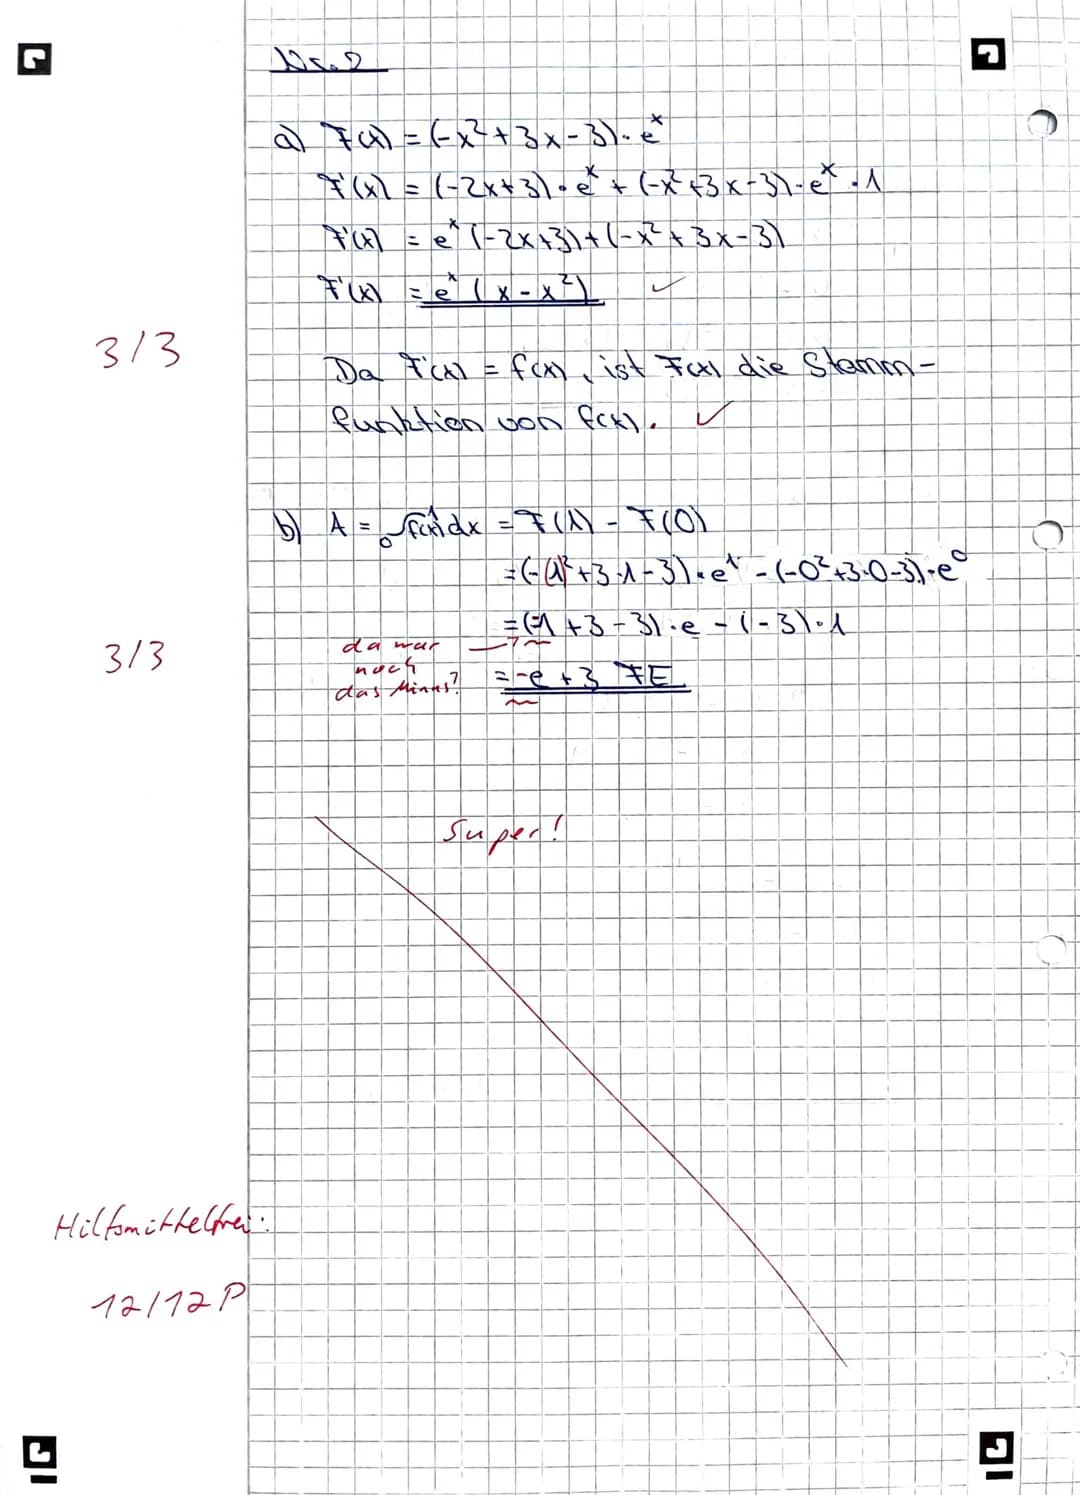 Nr. 2
a) F(x) = (-x² + 3x - 3) · eˣ
F'(x) = (-2x+3) · eˣ + (-x² + 3x - 3) · eˣ · 1
F'(x) = eˣ (-2x+3) + (-x² + 3x - 3)
F'(x) = eˣ (x - x²) ✓
3/3
Da F'(x) = f(x), ist F(x) die Stamm-
funktion von f(x). ✓
b) A = ₀∫¹ f(x) dx = F(1) - F(0)
= (-(1)² + 3·1 - 3) · e¹ - (-0² + 3·0 - 3) · e⁰
= (-1 + 3 - 3) · e - (-3) · 1
3/3
da war
noch
das Minus?
= -e + 3 FE
Super!
Hilfsmittelfrei:
12/12 P